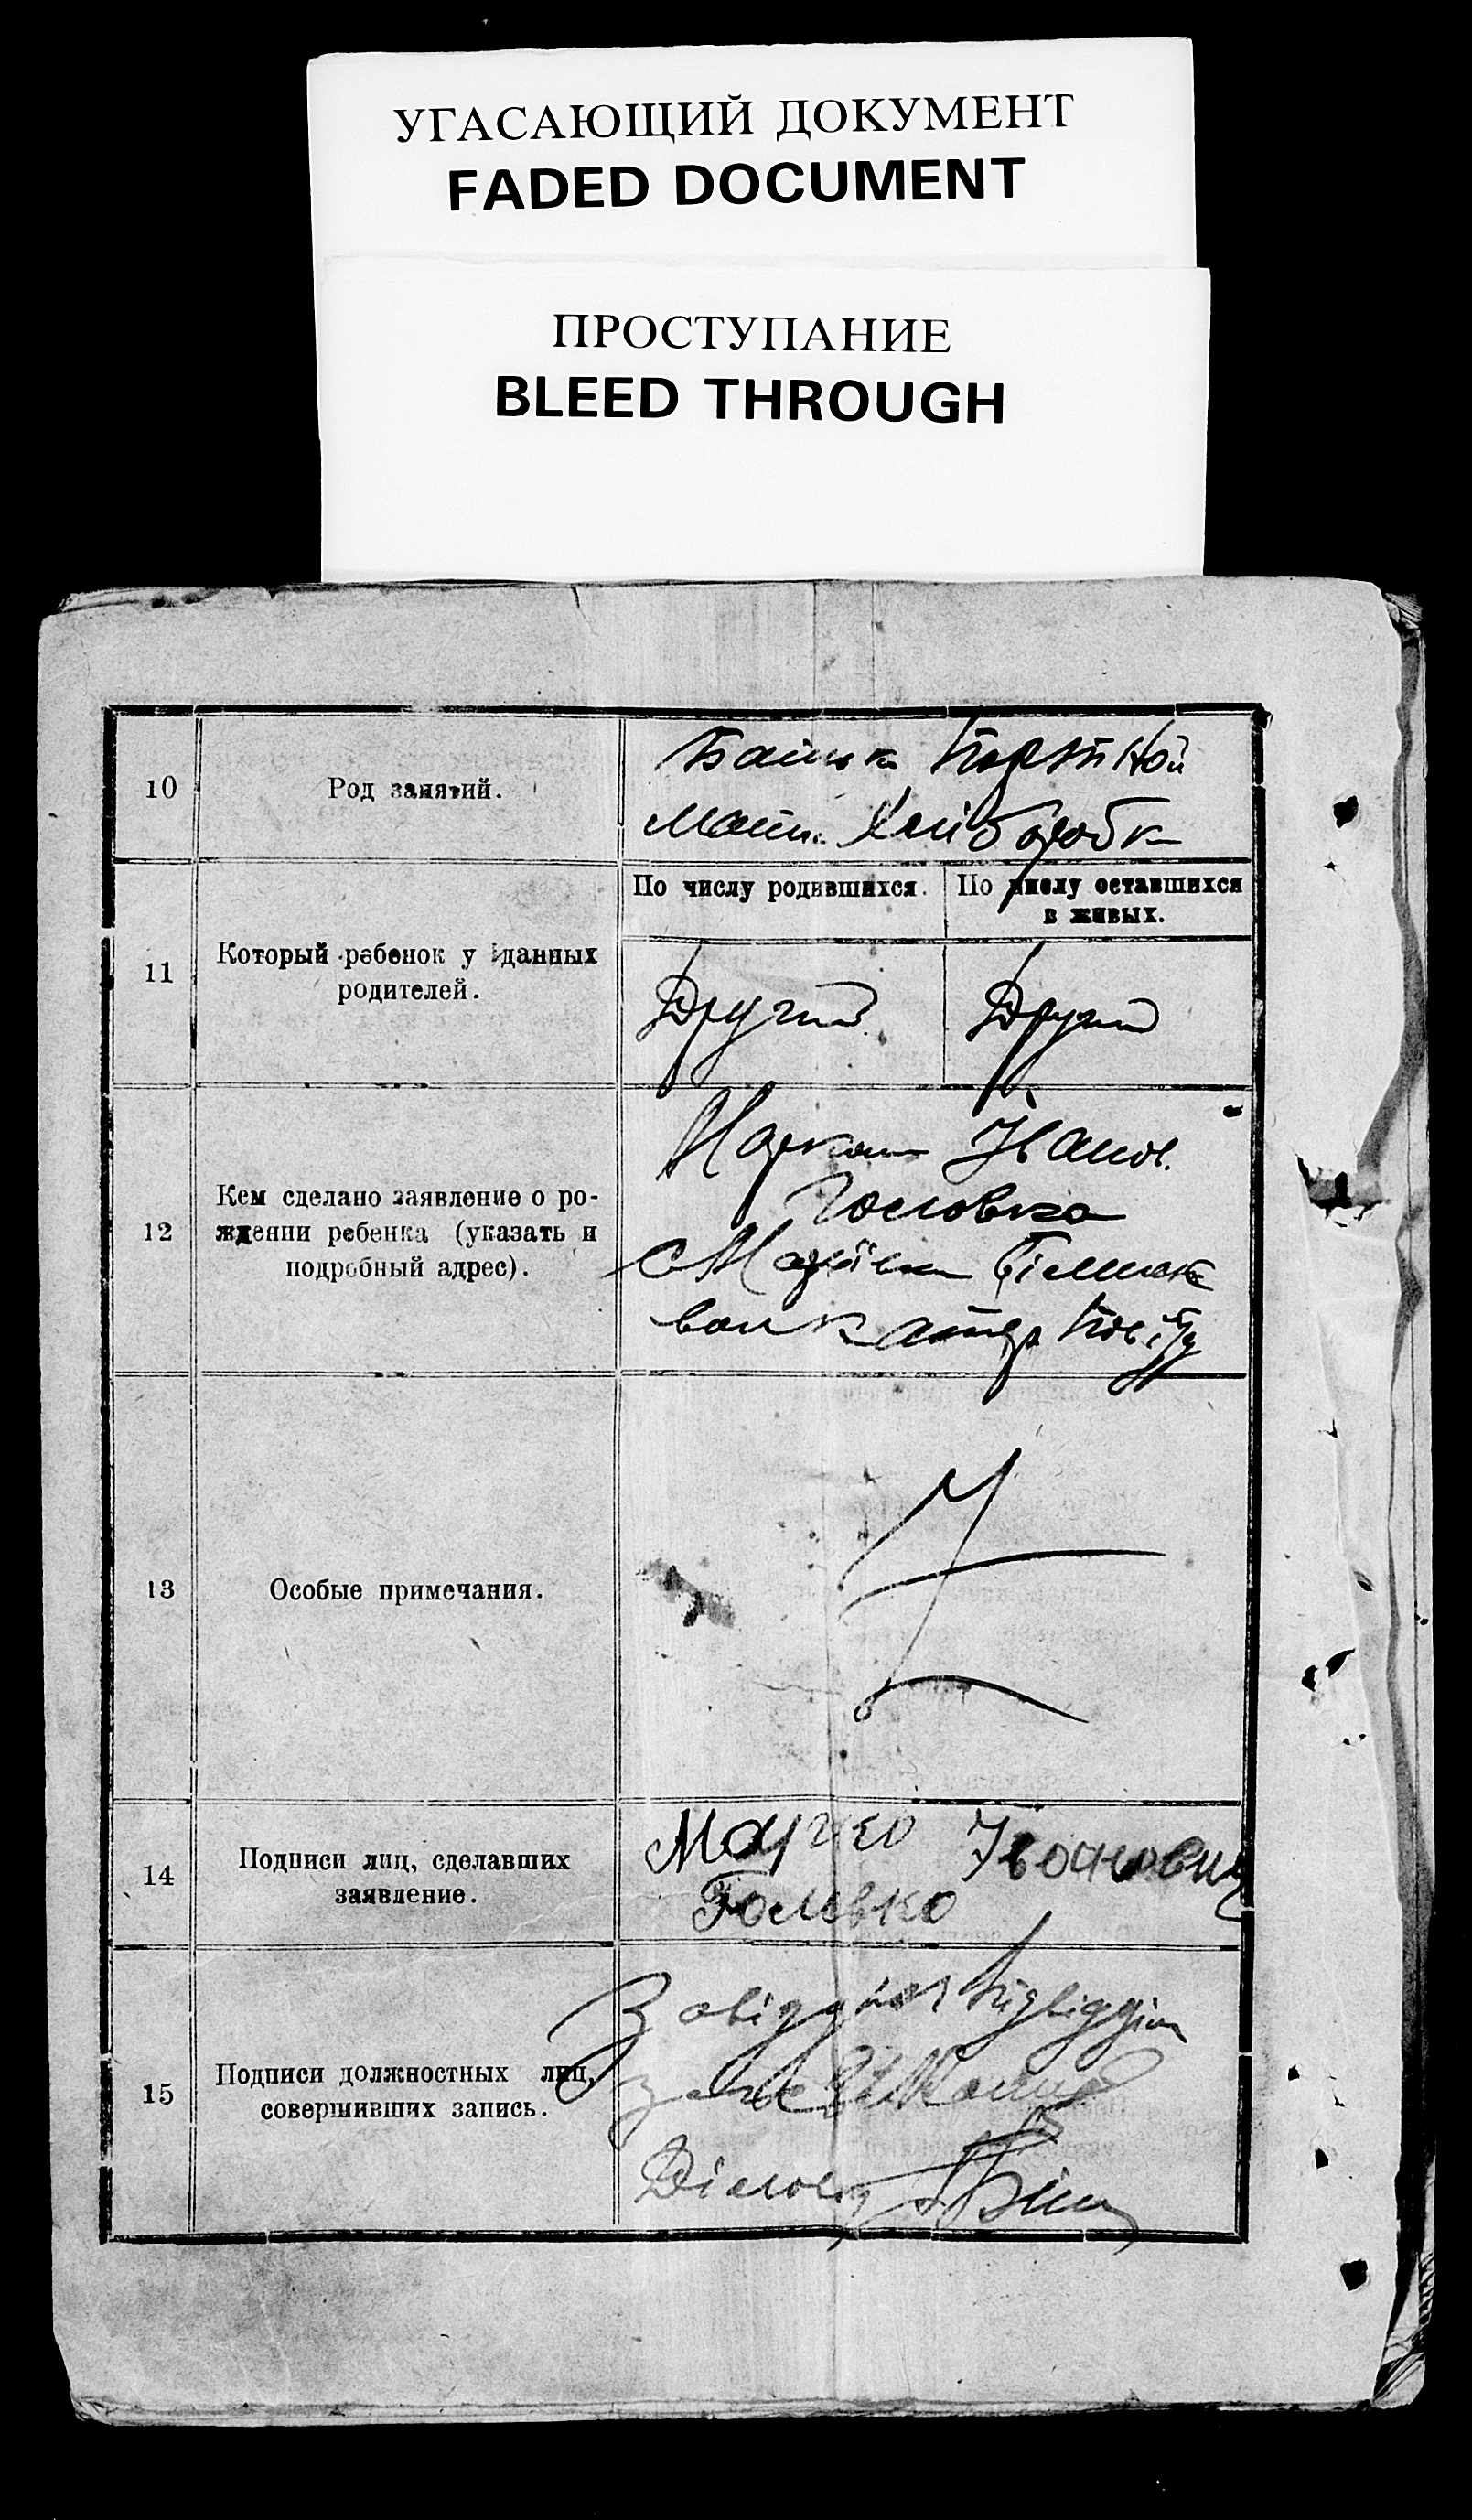 УГАСАЮЩИЙ ДОКУМЕНТ
FADED DOCUMENT
ПРОСТУПАНИЕ
BLEED THROUGH
10
Род занятий.
Батько Портной
Мати Хліборобка
11
Который ребенок у данных
родителей.
По числу родившихся.
По числу оставшихся
в живых.
Другий
Другий
12
Кем сделано заявление о ро-
ждении ребенка (указать и
подробный адрес).
Марком Іванов.
Головко
13
Особые примечания.
14
Подписи лиц, сделавших
заявление.
Марко Іванович
Головко
15
Подписи должностных лиц,
совершивших запись.
Діловод